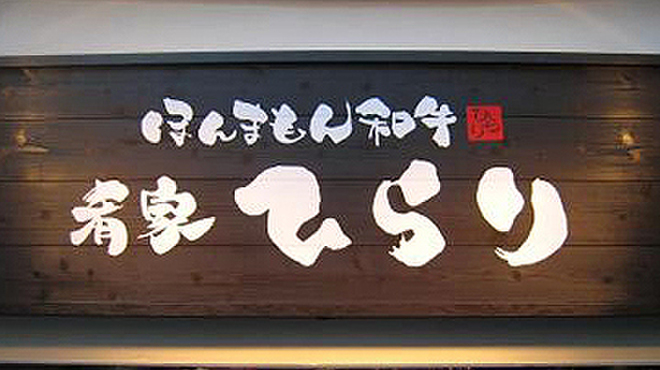 ほんまもん和牛 ひらり
肴家 ひらり